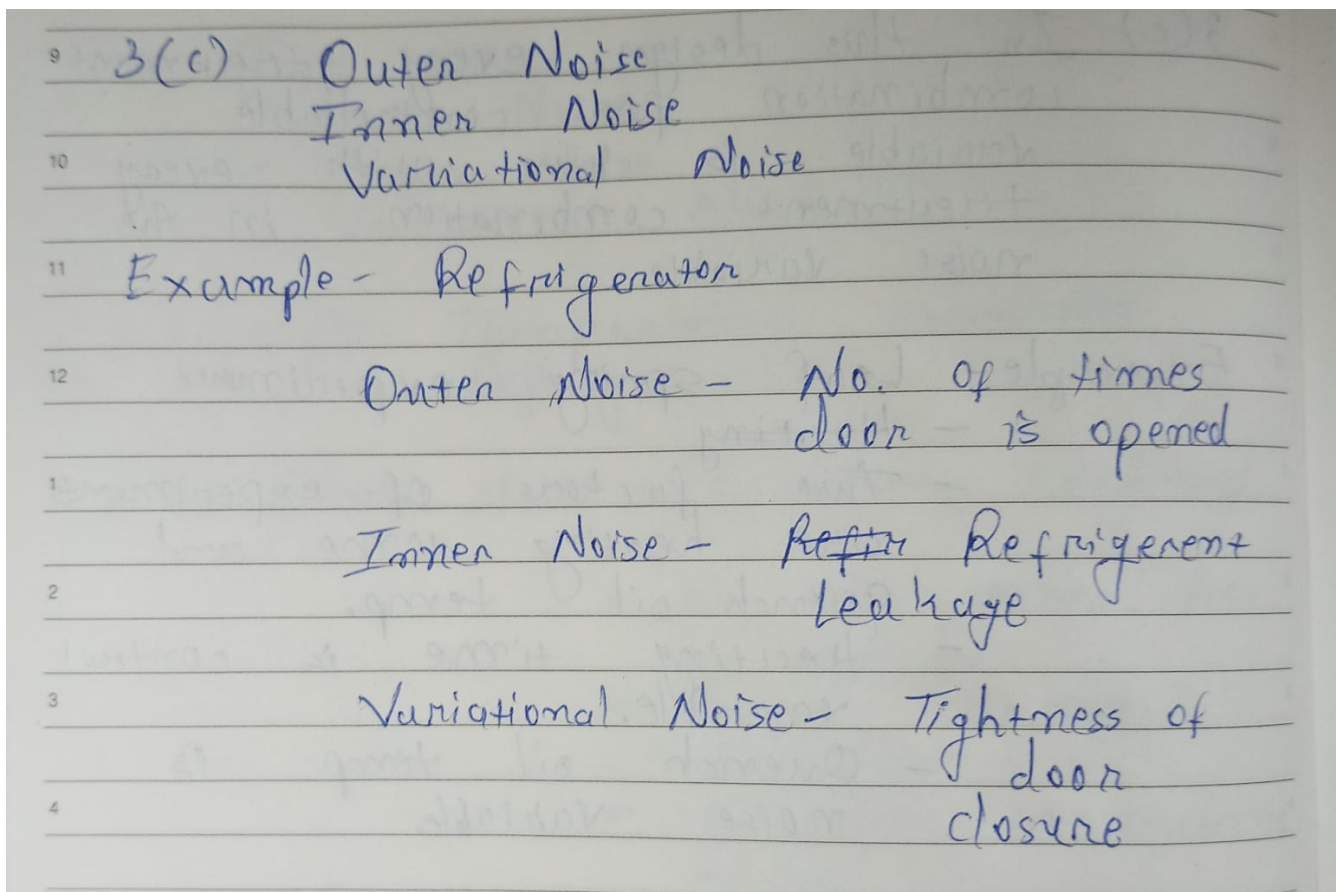 9 3(c) Outer Noise
Inner Noise
10 Variational Noise
11 Example - Refrigerator
12 Outer Noise - No. of times
door is opened
1
Inner Noise - Refrigerent
2 Leakage
3 Variational Noise - Tightness of
door
4 closure